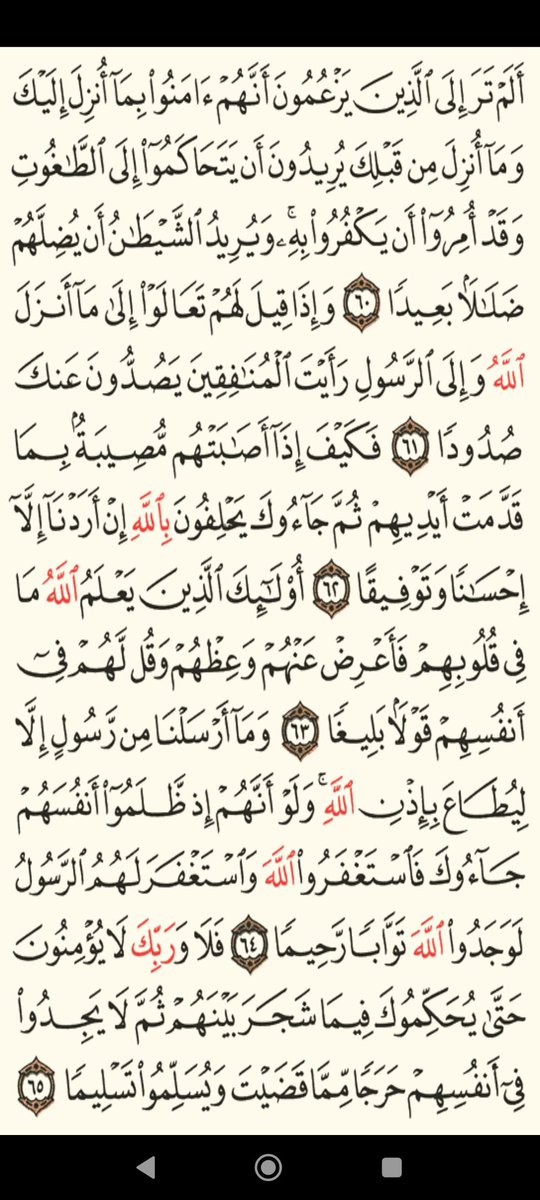 أَلَمْ تَرَ إِلَى ٱلَّذِينَ يَزْعُمُونَ أَنَّهُمْ ءَامَنُوا۟ بِمَآ أُنزِلَ إِلَيْكَ
وَمَآ أُنزِلَ مِن قَبْلِكَ يُرِيدُونَ أَن يَتَحَاكَمُوٓا۟ إِلَى ٱلطَّـٰغُوتِ
وَقَدْ أُمِرُوٓا۟ أَن يَكْفُرُوا۟ بِهِۦۚ وَيُرِيدُ ٱلشَّيْطَـٰنُ أَن يُضِلَّهُمْ
ضَلَـٰلَۢا بَعِيدًا ٦٠ وَإِذَا قِيلَ لَهُمْ تَعَالَوْا۟ إِلَىٰ مَآ أَنزَلَ
ٱللَّهُ وَإِلَى ٱلرَّسُولِ رَأَيْتَ ٱلْمُنَـٰفِقِينَ يَصُدُّونَ عَنكَ
صُدُودًا ٦١ فَكَيْفَ إِذَآ أَصَـٰبَتْهُم مُّصِيبَةٌۢ بِمَا
قَدَّمَتْ أَيْدِيهِمْ ثُمَّ جَآءُوكَ يَحْلِفُونَ بِٱللَّهِ إِنْ أَرَدْنَآ إِلَّآ
إِحْسَـٰنًا وَتَوْفِيقًا ٦٢ أُو۟لَـٰٓئِكَ ٱلَّذِينَ يَعْلَمُ ٱللَّهُ مَا
فِى قُلُوبِهِمْ فَأَعْرِضْ عَنْهُمْ وَعِظْهُمْ وَقُل لَّهُمْ فِىٓ
أَنفُسِهِمْ قَوْلًۢا بَلِيغًا ٦٣ وَمَآ أَرْسَلْنَا مِن رَّسُولٍ إِلَّا
لِيُطَاعَ بِإِذْنِ ٱللَّهِۚ وَلَوْ أَنَّهُمْ إِذ ظَّلَمُوٓا۟ أَنفُسَهُمْ
جَآءُوكَ فَٱسْتَغْفَرُوا۟ ٱللَّهَ وَٱسْتَغْفَرَ لَهُمُ ٱلرَّسُولُ
لَوَجَدُوا۟ ٱللَّهَ تَوَّابًا رَّحِيمًا ٦٤ فَلَا وَرَبِّكَ لَا يُؤْمِنُونَ
حَتَّىٰ يُحَكِّمُوكَ فِيمَا شَجَرَ بَيْنَهُمْ ثُمَّ لَا يَجِدُوا۟
فِىٓ أَنفُسِهِمْ حَرَجًا مِّمَّا قَضَيْتَ وَيُسَلِّمُوا۟ تَسْلِيمًا ٦٥